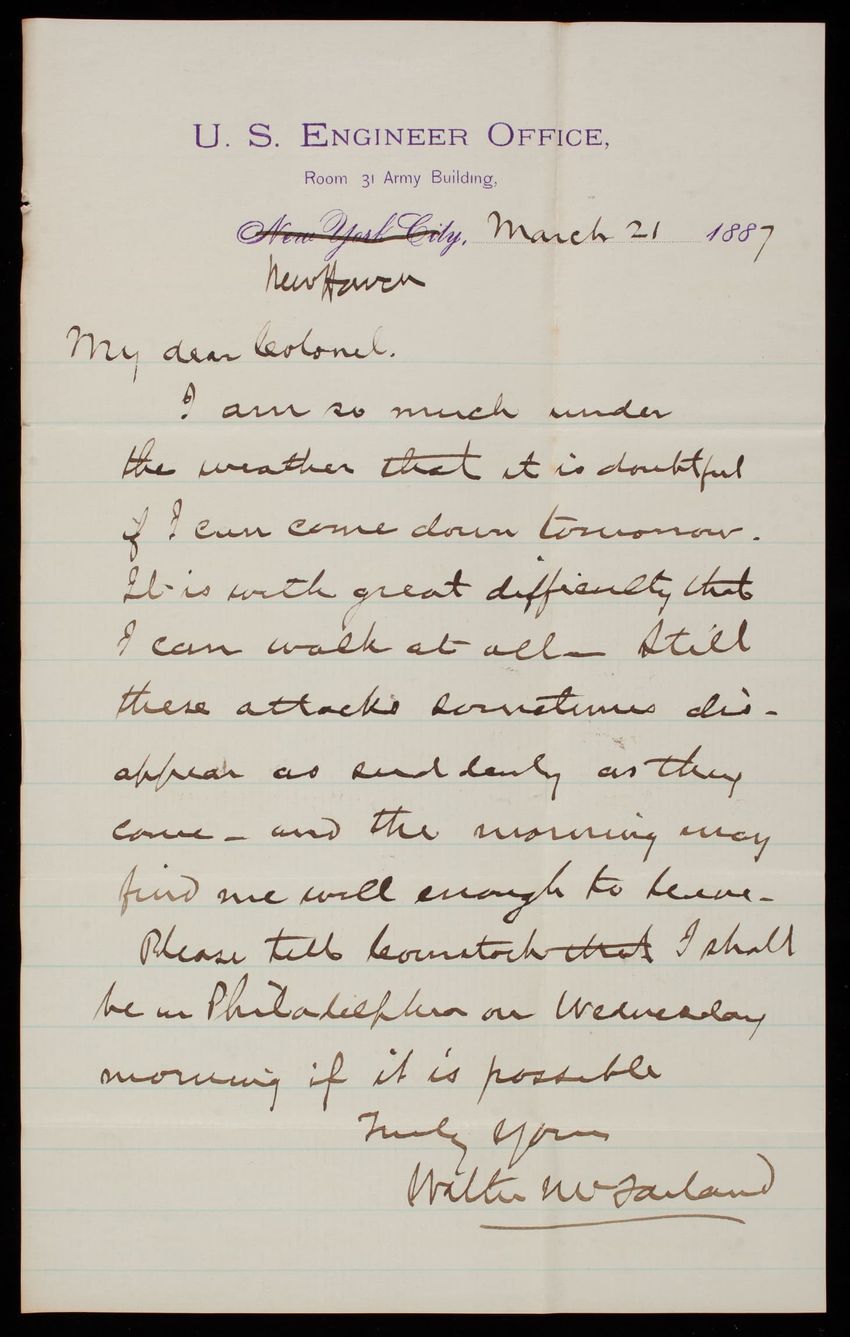 U. S. Engineer Office,
Room 31 Army Building,
New York City, March 21 1887
New Haven
My dear Colonel.
I am so much under
the weather that it is doubtful
if I can come down tomorrow.
It is with great difficulty that
I can walk at all — Still
these attacks sometimes dis-
appear as suddenly as they
come — and the morning may
find me well enough to leave —
Please tell Comstock that I shall
be in Philadelphia on Wednesday
morning if it is possible
Truly Yours
Walter McFarland